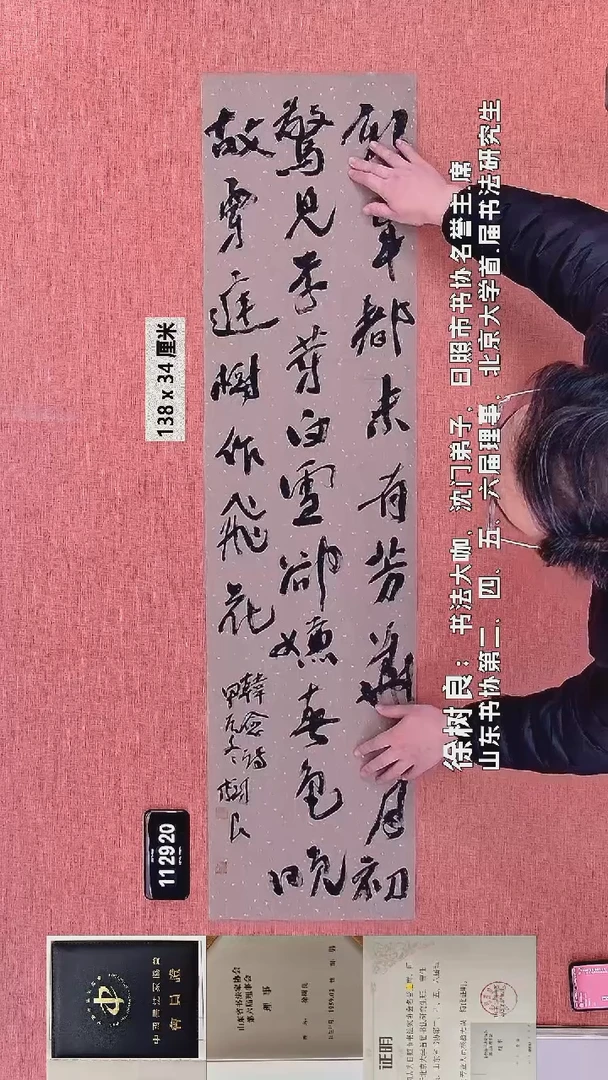 年都未有芳華
月初
驚見草芽白雪卻嫌春色晚
故穿庭樹作飛花
韓愈詩
甲辰冬樹良
138 x 34 厘米
徐树良：书法大咖，沈门弟子，日照市书协名誉主席
山东书协第二、四、五、六届理事，北京大学首届书法研究生
11 29 20
中國書法家協會
會員證
山东省书法家协会
第六届理事会
理事
证明